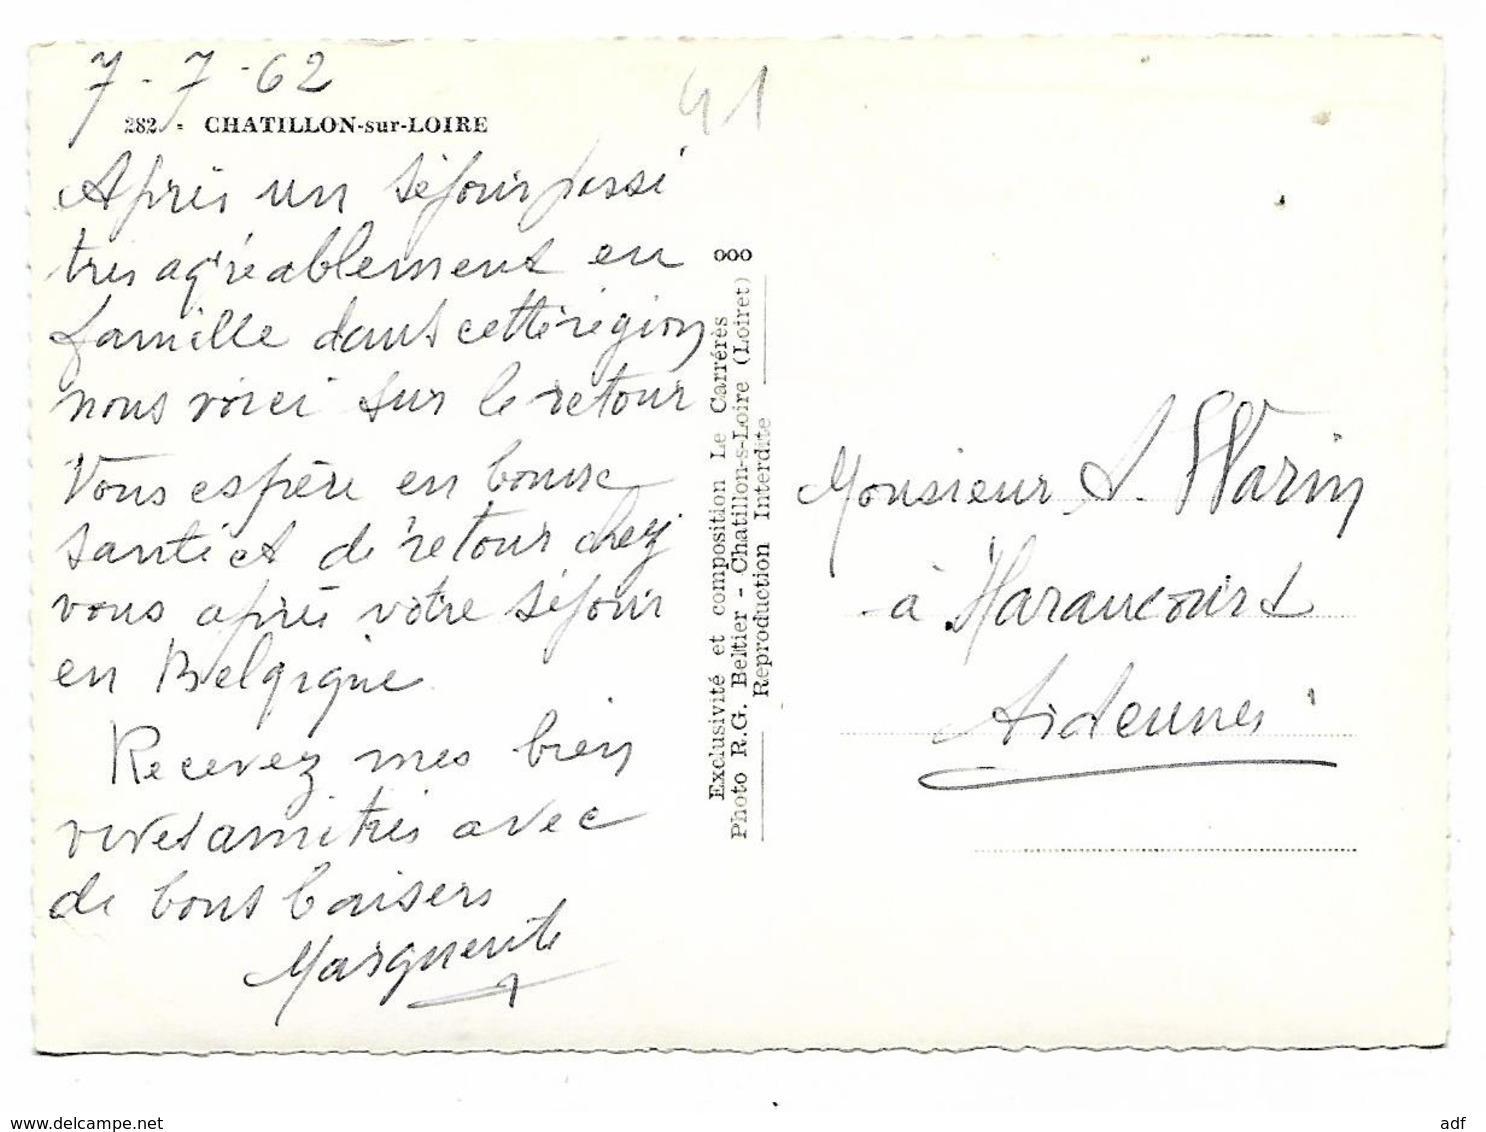 7-7-62
41
282 - CHATILLON-sur-LOIRE
Après un séjour passé
très agréablement en
famille dans cette région
nous voici sur le retour
Vous espère en bonne
santé et de retour chez
vous après votre séjour
en Belgique
Recevez mes bien
vives amitiés avec
de bons baisers
Marguerite
ooo
Exclusivité et composition Le Carrérès
Photo R.G. Beltier - Chatillon-s-Loire (Loiret)
Reproduction Interdite
Monsieur S. Warin
à Haraucourt
Ardennes
www.delcampe.net
adf